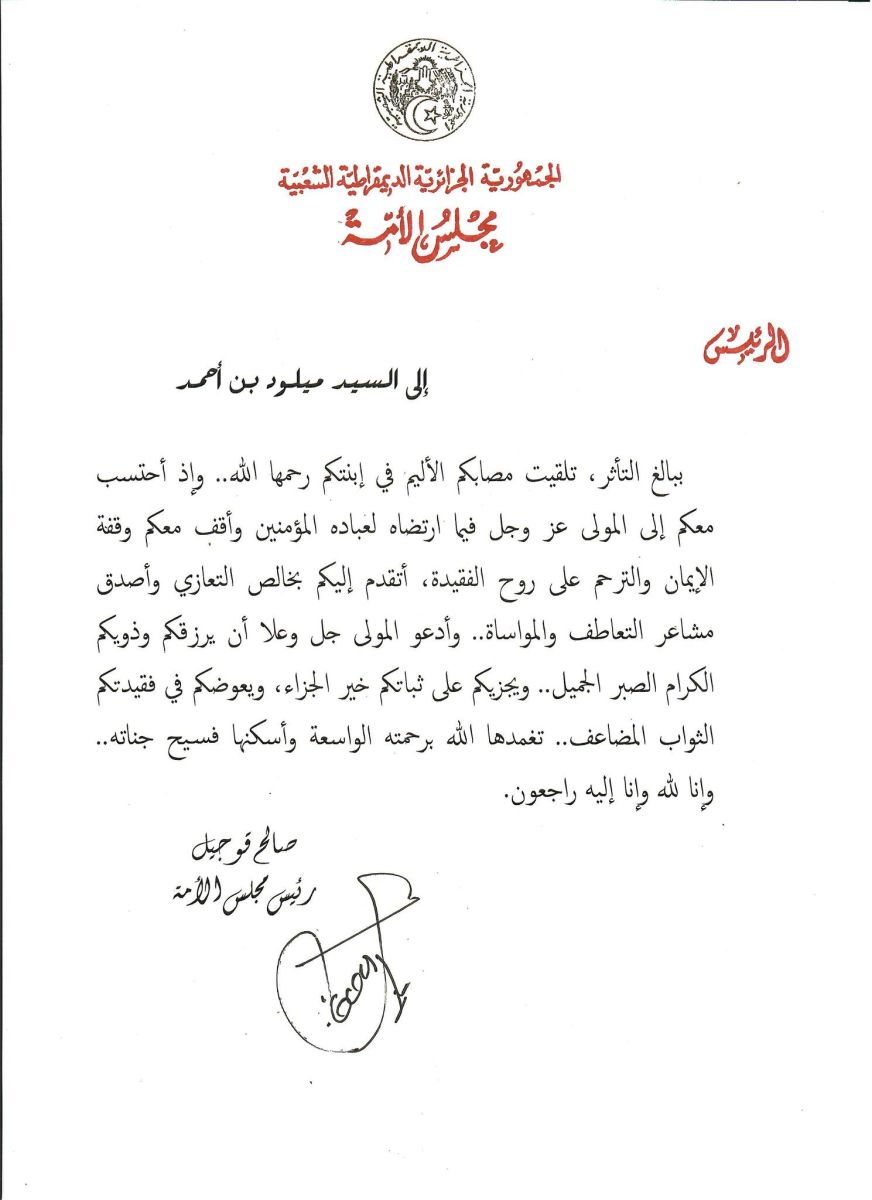 الجمهورية الجزائرية الديمقراطية الشعبية
الجمْهُوريّة الجزائريّة الديمقراطيّة الشعْبيّة
مجْلسُ الأمّة
الرئيس
إلى السيد ميلود بن أحمد
ببالغ التأثر، تلقيت مصابكم الأليم في إبنتكم رحمها الله.. وإذ أحتسب
معكم إلى المولى عز وجل فيما ارتضاه لعباده المؤمنين وأقف معكم وقفة
الإيمان والترحم على روح الفقيدة، أتقدم إليكم بخالص التعازي وأصدق
مشاعر التعاطف والمواساة.. وأدعو المولى جل وعلا أن يرزقكم وذويكم
الكرام الصبر الجميل.. ويجزيكم على ثباتكم خير الجزاء، ويعوضكم في فقيدتكم
الثواب المضاعف.. تغمدها الله برحمته الواسعة وأسكنها فسيح جناته..
وإنا لله وإنا إليه راجعون.
صالح قوجيل
رئيس مجلس الأمة